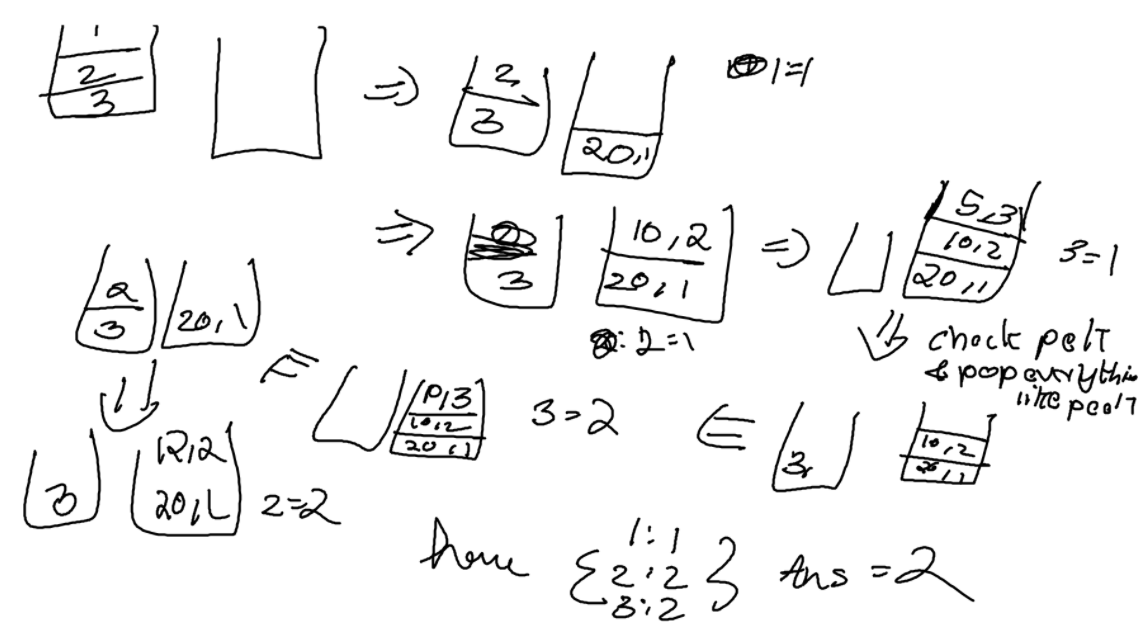 1
2
3
2
3
20,1
1=1
3
10,2
20,1
2=1
5,3
10,2
20,1
3=1
check pelt
& pop everythin
like pealt
3
10,2
20,1
3=2
P,3
10,2
20,1
2
3
20,1
3
12,2
20,1
2=2
1:1
2:2
3:2
Ans = 2